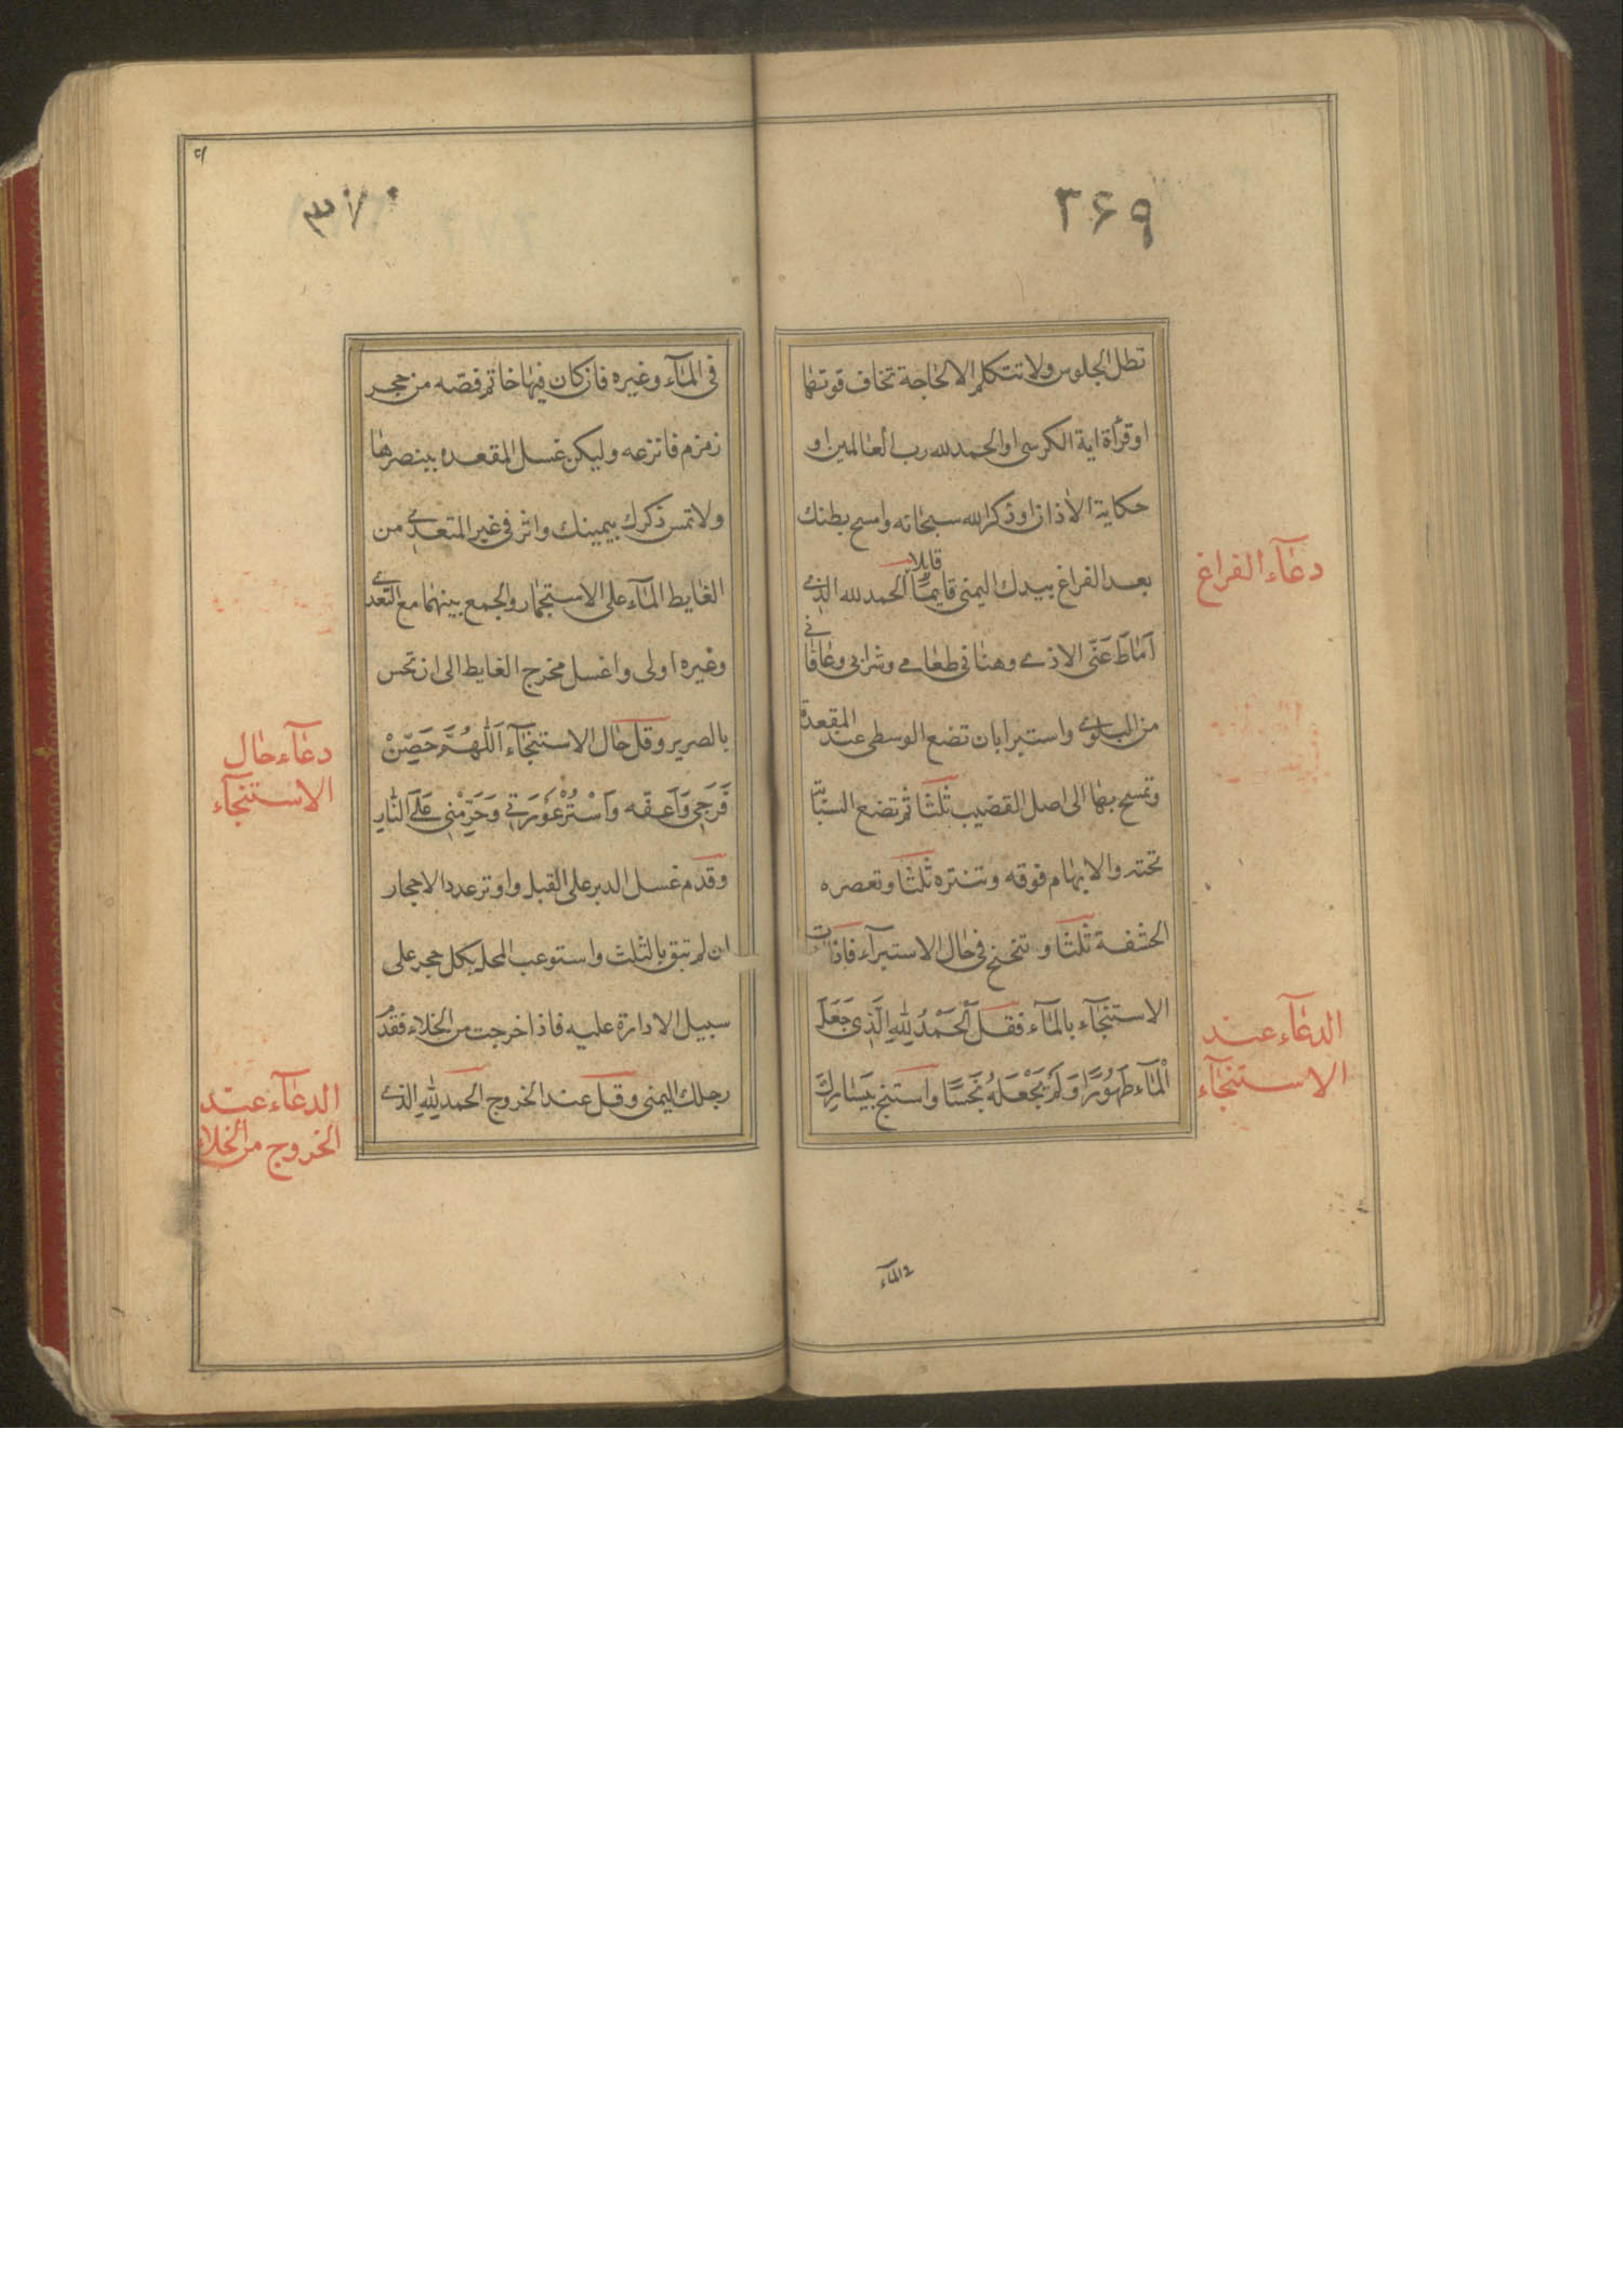 ۳۶۹
تطل الجلوس ولا تتكلم الا لحاجة تخاف فوتها
او قرأة اية الكرسى او الحمد لله رب العالمين او
حكاية الاذان او ذكر الله سبحانه وامسح بطنك
قايلا
بعد الفراغ بيدك اليمنى قايمًا الحمد لله الذى
اَمٰاطَ عَنّى الاذى وهنانى طعامى وشرابى وعافانى
من البلوى واستبرا بان تضع الوسطى عند المقعدة
وتمسح بها الى اصل القضيب ثلثا ثم تضع السبابة
تحته والابهام فوقه وتنتره ثلثا وتعصره
الحشفة ثلثا و تتنحنح فى حال الاستبرآء فاذا
الاستنجآء بالمآء فقل اَلْحَمْدُ لِلّٰهِ الَّذِى جَعَلَ
الْمٰآءَ طَهُورًا وَلَمْ يَجْعَلْهُ نَجَسًا واستنج بيسارك
دعآء الفراغ
الدعآء عند
الاستنجآء
۳۷۰
فى المآء وغيره فان كان فيها خاتم فصّه من حجر
زمزم فانزعه وليكن غسل المقعده ببنصرها
ولا تمس ذكرك بيمينك واثر فى غير المتعدى من
الغايط المآء على الاستجمار والجمع بينهما مع التعدى
وغيره اولى واغسل مخرج الغايط الى ان تحس
بالصرير وقل حال الاستنجآء اَللّٰهُمَّ حَصِّنْ
فَرْجِى وَاَعِفَّه وَاسْتُرْ عَوْرَتِى وَحَرِّمْنِى عَلَى النّٰارِ
وقدم غسل الدبر على القبل واوتر عدد الاحجار
ان لم تبق بالثلث واستوعب المحل بكل حجر على
سبيل الادارة عليه فاذا خرجت من الخلاء فقدم
رجلك اليمنى وقل عند الخروج الحمد لله الذى
دعآء حال
الاستنجآء
الدعآء عند
الخروج من الخلاء